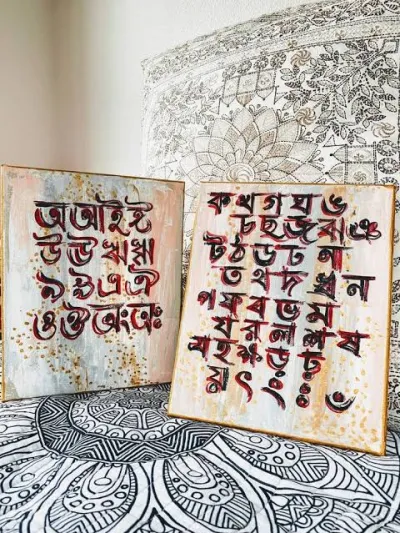 অ আ ই ঈ
উ ঊ ঋ ৠ
ঌ ৡ এ ঐ
ও ঔ অং অঃ
ক খ গ ঘ ঙ
চ ছ জ ঝ ঞ
ট ঠ ড ঢ ণ
ত থ দ ধ ন
প ফ ব ভ ম
য র ল শ ষ
স হ ক্ষ ড় ঢ়
য় ৎ ং ঃ ঁ